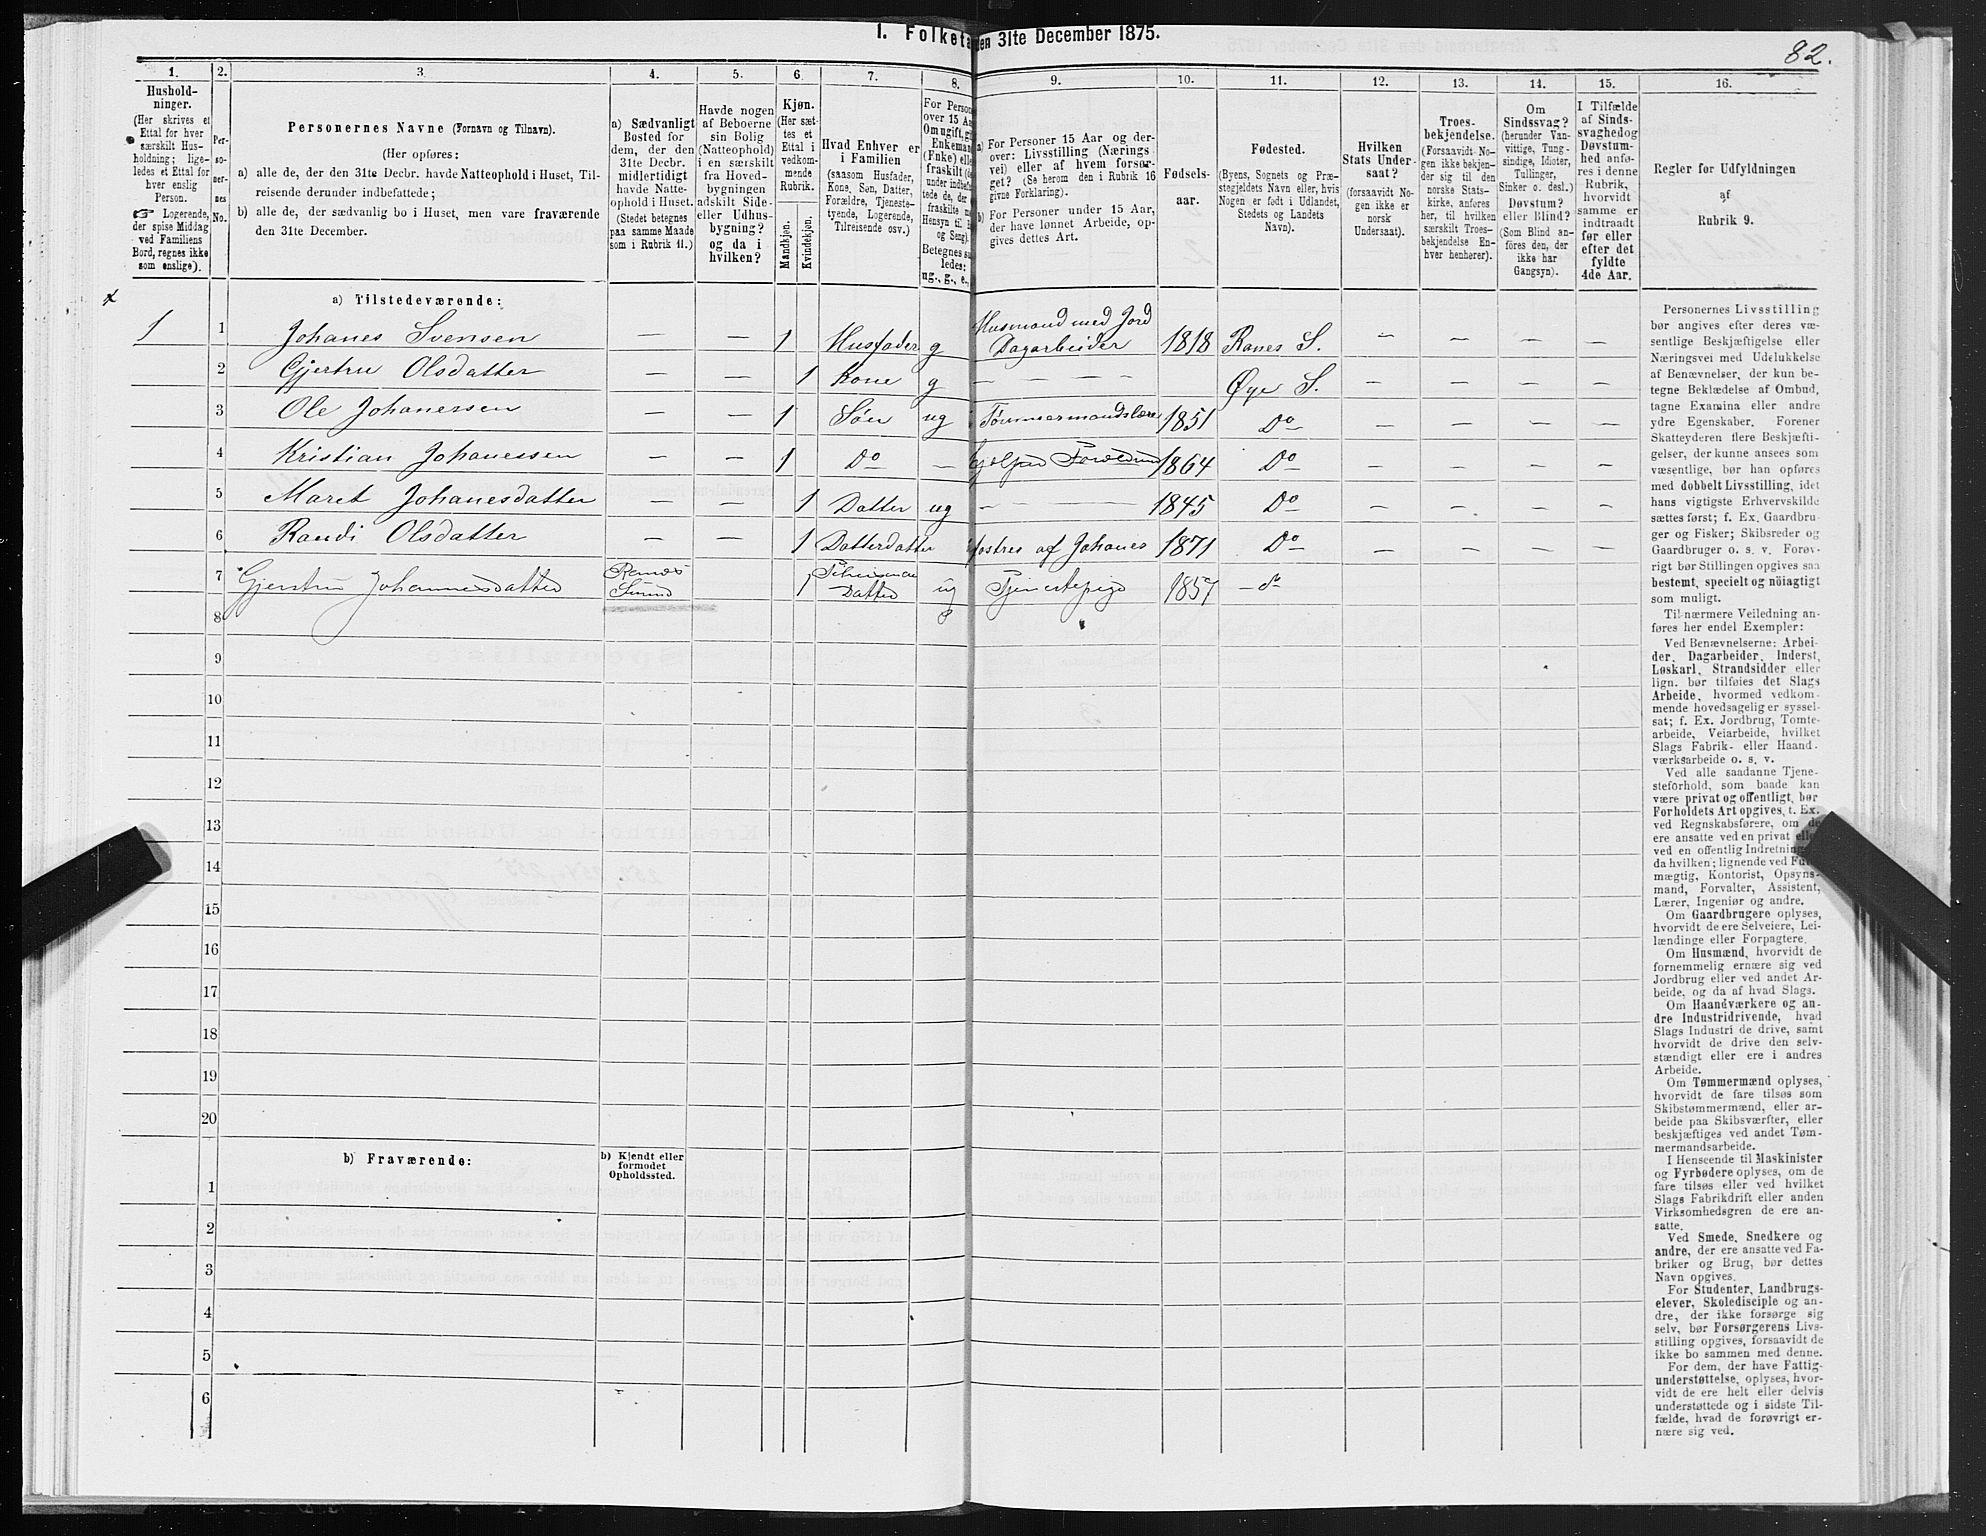 1. Folketæ
en 31te December 1875.
82.
1.
2.
3.
4.
5.
6.
7.
8.
9.
10.
11.
12.
13.
14.
15.
16.
Hushold-
ninger.
(Her skrives et
Ettal for hver
særskilt Hus-
holdning; lige-
ledes et Ettal for
hver enslig
Person.
☞ Logerende,
der spise Middag
ved Familiens
Bord, regnes ikke
som enslige).
Per-
so-
ner-
nes
No.
Personernes Navne (Fornavn og Tilnavn).
(Her opføres:
a) alle de, der den 31te Decbr. havde Natteophold i Huset, Til-
reisende derunder indbefattede;
b) alle de, der sædvanlig bo i Huset, men vare fraværende
den 31te December.
a) Sædvanligt
Bosted for
dem, der den
31te Decbr.
midlertidigt
havde Natte-
ophold i Huset.
(Stedet betegnes
paa samme Maade
som i Rubrik 11.)
Havde nogen
af Beboerne
sin Bolig
(Natteophold)
i en særskilt
fra Hoved-
bygningen
adskilt Side-
eller Udhus-
bygning?
og da i
hvilken?
Kjøn.
(Her sæt-
tes et
Ettal i
vedkom-
mende
Rubrik.
Mandkjøn.
Kvindekjøn.
Hvad Enhver er
i Familien
(saasom Husfader,
Kone, Søn, Datter,
Forældre, Tjeneste-
tyende, Logerende,
Tilreisende osv.)
For Person
over 15 Aa
Om ugift, gi
Enkeman
(Enke) elle
fraskilt (de
under indbef
tede de, der
fraskilte m
Hensyn til B
og Seng).
Betegnes saa
ledes:
ug., g., e.,
a) For Personer 15 Aar og der-
over: Livsstilling (Nærings-
vei) eller af hvem forsør-
get? (Se herom den i Rubrik 16
givne Forklaring).
b) For Personer under 15 Aar,
der have lønnet Arbeide, op-
gives dettes Art.
Fødsels-
aar.
Fødested.
(Byens, Sognets og Præ-
stegjeldets Navn eller, hvis
Nogen er født i Udlandet,
Stedets og Landets
Navn).
Hvilken
Stats Under-
saat?
(forsaavidt No-
gen ikke er
norsk
Undersaat).
Troes-
bekjendelse.
(Forsaavidt No-
gen ikke bekjen-
der sig til den
norske Stats-
kirke, anføres
her, til hvilken
særskilt Troes-
bekjendelse En-
hver henhører).
Om
Sindssvag?
(herunder Van-
vittige, Tung-
sindige, Idioter,
Tullinger,
Sinker o. desl.)
Døvstum?
eller Blind?
(Som Blind an-
føres den, der
ikke har
Gangsyn).
I Tilfælde
af Sinds-
svaghed og
Døvstum-
hed anfø-
res i denne
Rubrik,
hvorvidt
samme er
indtraadt
før eller
efter det
fyldte
4de Aar.
Regler for Udfyldningen
af
Rubrik 9.
a) Tilstedeværende:
1 1 Johanes Svensen — — 1 Husfader g Husmand med Jord Dagarbeider 1818 Ranes S. — — — —
2 Gjertru Olsdatter — — 1 Kone g — — — — Øye S. — — — —
3 Ole Johanessen — — 1 Søn ug Tømmermandslære 1851 Do — — — —
4 Kristian Johanessen — — 1 Do — hjelper Forældrene 1864 Do — — — —
5 Maret Johanesdatter — — 1 Datter ug — 1845 Do — — — —
6 Randi Olsdatter — — 1 Datterdatter fostres af Johanes 1871 Do — — — —
7 Gjertru Johannesdatter Ranes 1 Datter ug Tjenestepige 1857 — do
8
9
10
11
12
13
14
15
16
17
18
19
20
b) Fraværende:
b) Kjendt eller
formodet
Opholdssted.
1
2
3
4
5
6
Personernes Livsstilling
bør angives efter deres væ-
sentlige Beskjæftigelse eller
Næringsvei med Udelukkelse
af Benævnelser, der kun be-
tegne Beklædelse af Ombud,
tagne Examina eller andre
ydre Egenskaber. Forener
Skatteyderen flere Beskjæfti-
gelser, der kunne ansees som
væsentlige, bør han opføres
med dobbelt Livsstilling, idet
hans vigtigste Erhvervskilde
sættes først; f. Ex. Gaardbru-
ger og Fisker; Skibsreder og
Gaardbruger o. s. v. Forøv-
rigt bør Stillingen opgives saa
bestemt, specielt og nøiagtigt
som muligt.
Til nærmere Veiledning an-
føres her endel Exempler:
Ved Benævnelserne: Arbei-
der, Dagarbeider, Inderst,
Løskarl, Strandsidder eller
lign. bør tilføies det Slags
Arbeide, hvormed vedkom-
mende hovedsagelig er syssel-
sat; f. Ex. Jordbrug, Tomte-
arbeide, Veiarbeide, hvilket
Slags Fabrik- eller Haand-
værksarbeide o. s. v.
Ved alle saadanne Tjene-
steforhold, som baade kan
være privat og offentligt, bør
Forholdets Art opgives, t. Ex.
ved Regnskabsførere, om de
ere ansatte ved en privat eller
ved en offentlig Indretning
da hvilken; lignende ved Ful
mægtig, Kontorist, Opsyns-
mand, Forvalter, Assistent,
Lærer, Ingeniør og andre.
Om Gaardbrugere oplyses,
hvorvidt de ere Selveiere, Lei-
lændinge eller Forpagtere.
Om Husmænd, hvorvidt de
fornemmelig ernære sig ved
Jordbrug eller ved andet Ar-
beide, og da af hvad Slags.
Om Haandværkere og an-
dre Industridrivende, hvad
Slags Industri de drive, samt
hvorvidt de drive den selv-
stændigt eller ere i andres
Arbeide.
Om Tømmermænd oplyses,
hvorvidt de fare tilsøs som
Skibstømmermænd, eller ar-
beide paa Skibsværfter, eller
beskjæftiges ved andet Tøm-
mermandsarbeide.
I Henseende til Maskinister
og Fyrbødere oplyses, om de
fare tilsøs eller ved hvilket
Slags Fabrikdrift eller anden
Virksomhedsgren de ere an-
satte.
Ved Smede, Snedkere og
andre, der ere ansatte ved Fa-
briker og Brug, bør dettes
Navn opgives.
For Studenter, Landbrugs-
elever, Skoledisciple og an-
dre, der ikke forsørge sig
selv, bør Forsørgerens Livs-
stilling opgives, forsaavidt de
ikke bo sammen med denne.
For dem, der have Fattig-
understøttelse, oplyses, hvor-
vidt de ere helt eller delvis
understøttede og i sidste Til-
fælde, hvad de forøvrigt er-
nære sig ved.